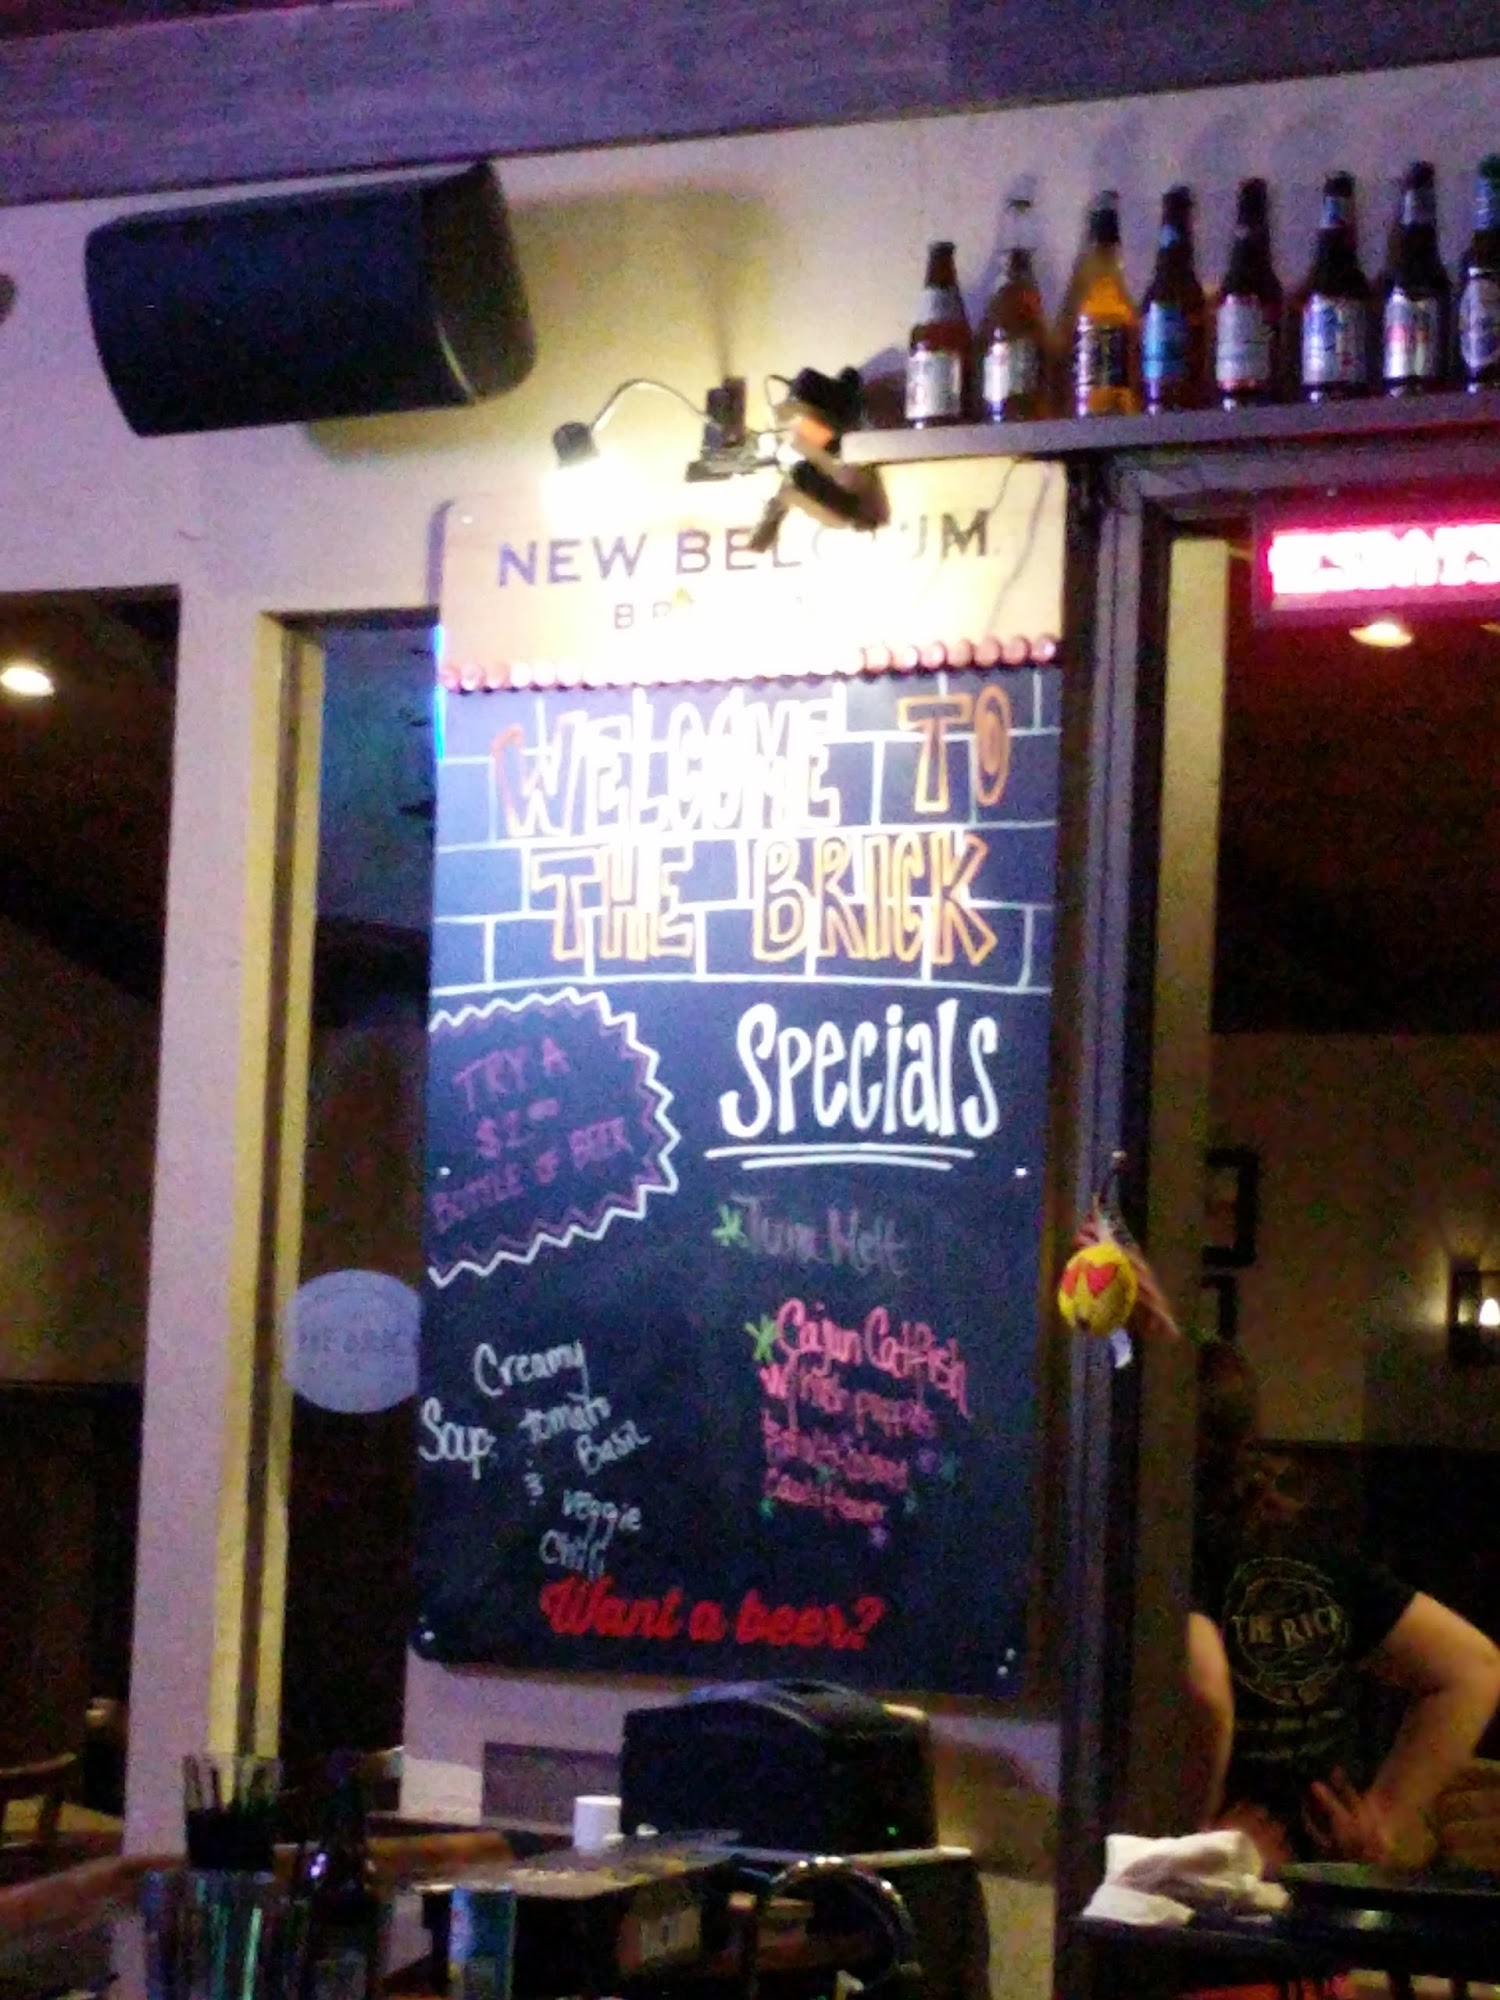 NEW BELGIUM
WELCOME TO
THE BRICK
TRY A
BOTTLE OF BEER
Specials
Tuna Melt
Cajun Catfish
Creamy
Soup: tomato
Basil
&
veggie
Chili
Want a beer?
THE BRICK